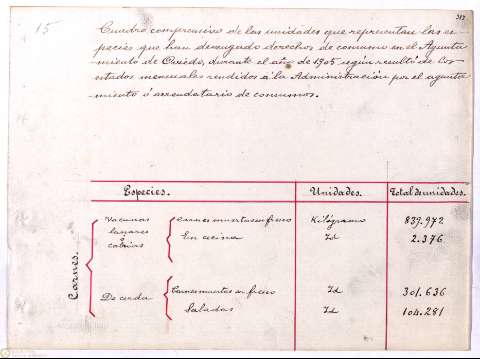 15
Cuadro comprensivo de las unidades que representan las es-
pecies que han devengado derechos de consumo en el Ayunta-
miento de Oviedo, durante el año de 1905 según resulta de los
estados mensuales rendidos á la Administración por el ayunta-
miento ó arrendatario de consumos.
Especies. Unidades. Total de unidades.
Carnes.
Vacunas Carnes muertas en fresco Kilógramo 839.972
lanares En cecina Id 2.376
cabrias
De cerda Carnes muertas en fresco Id 301.636
Saladas Id 104.281